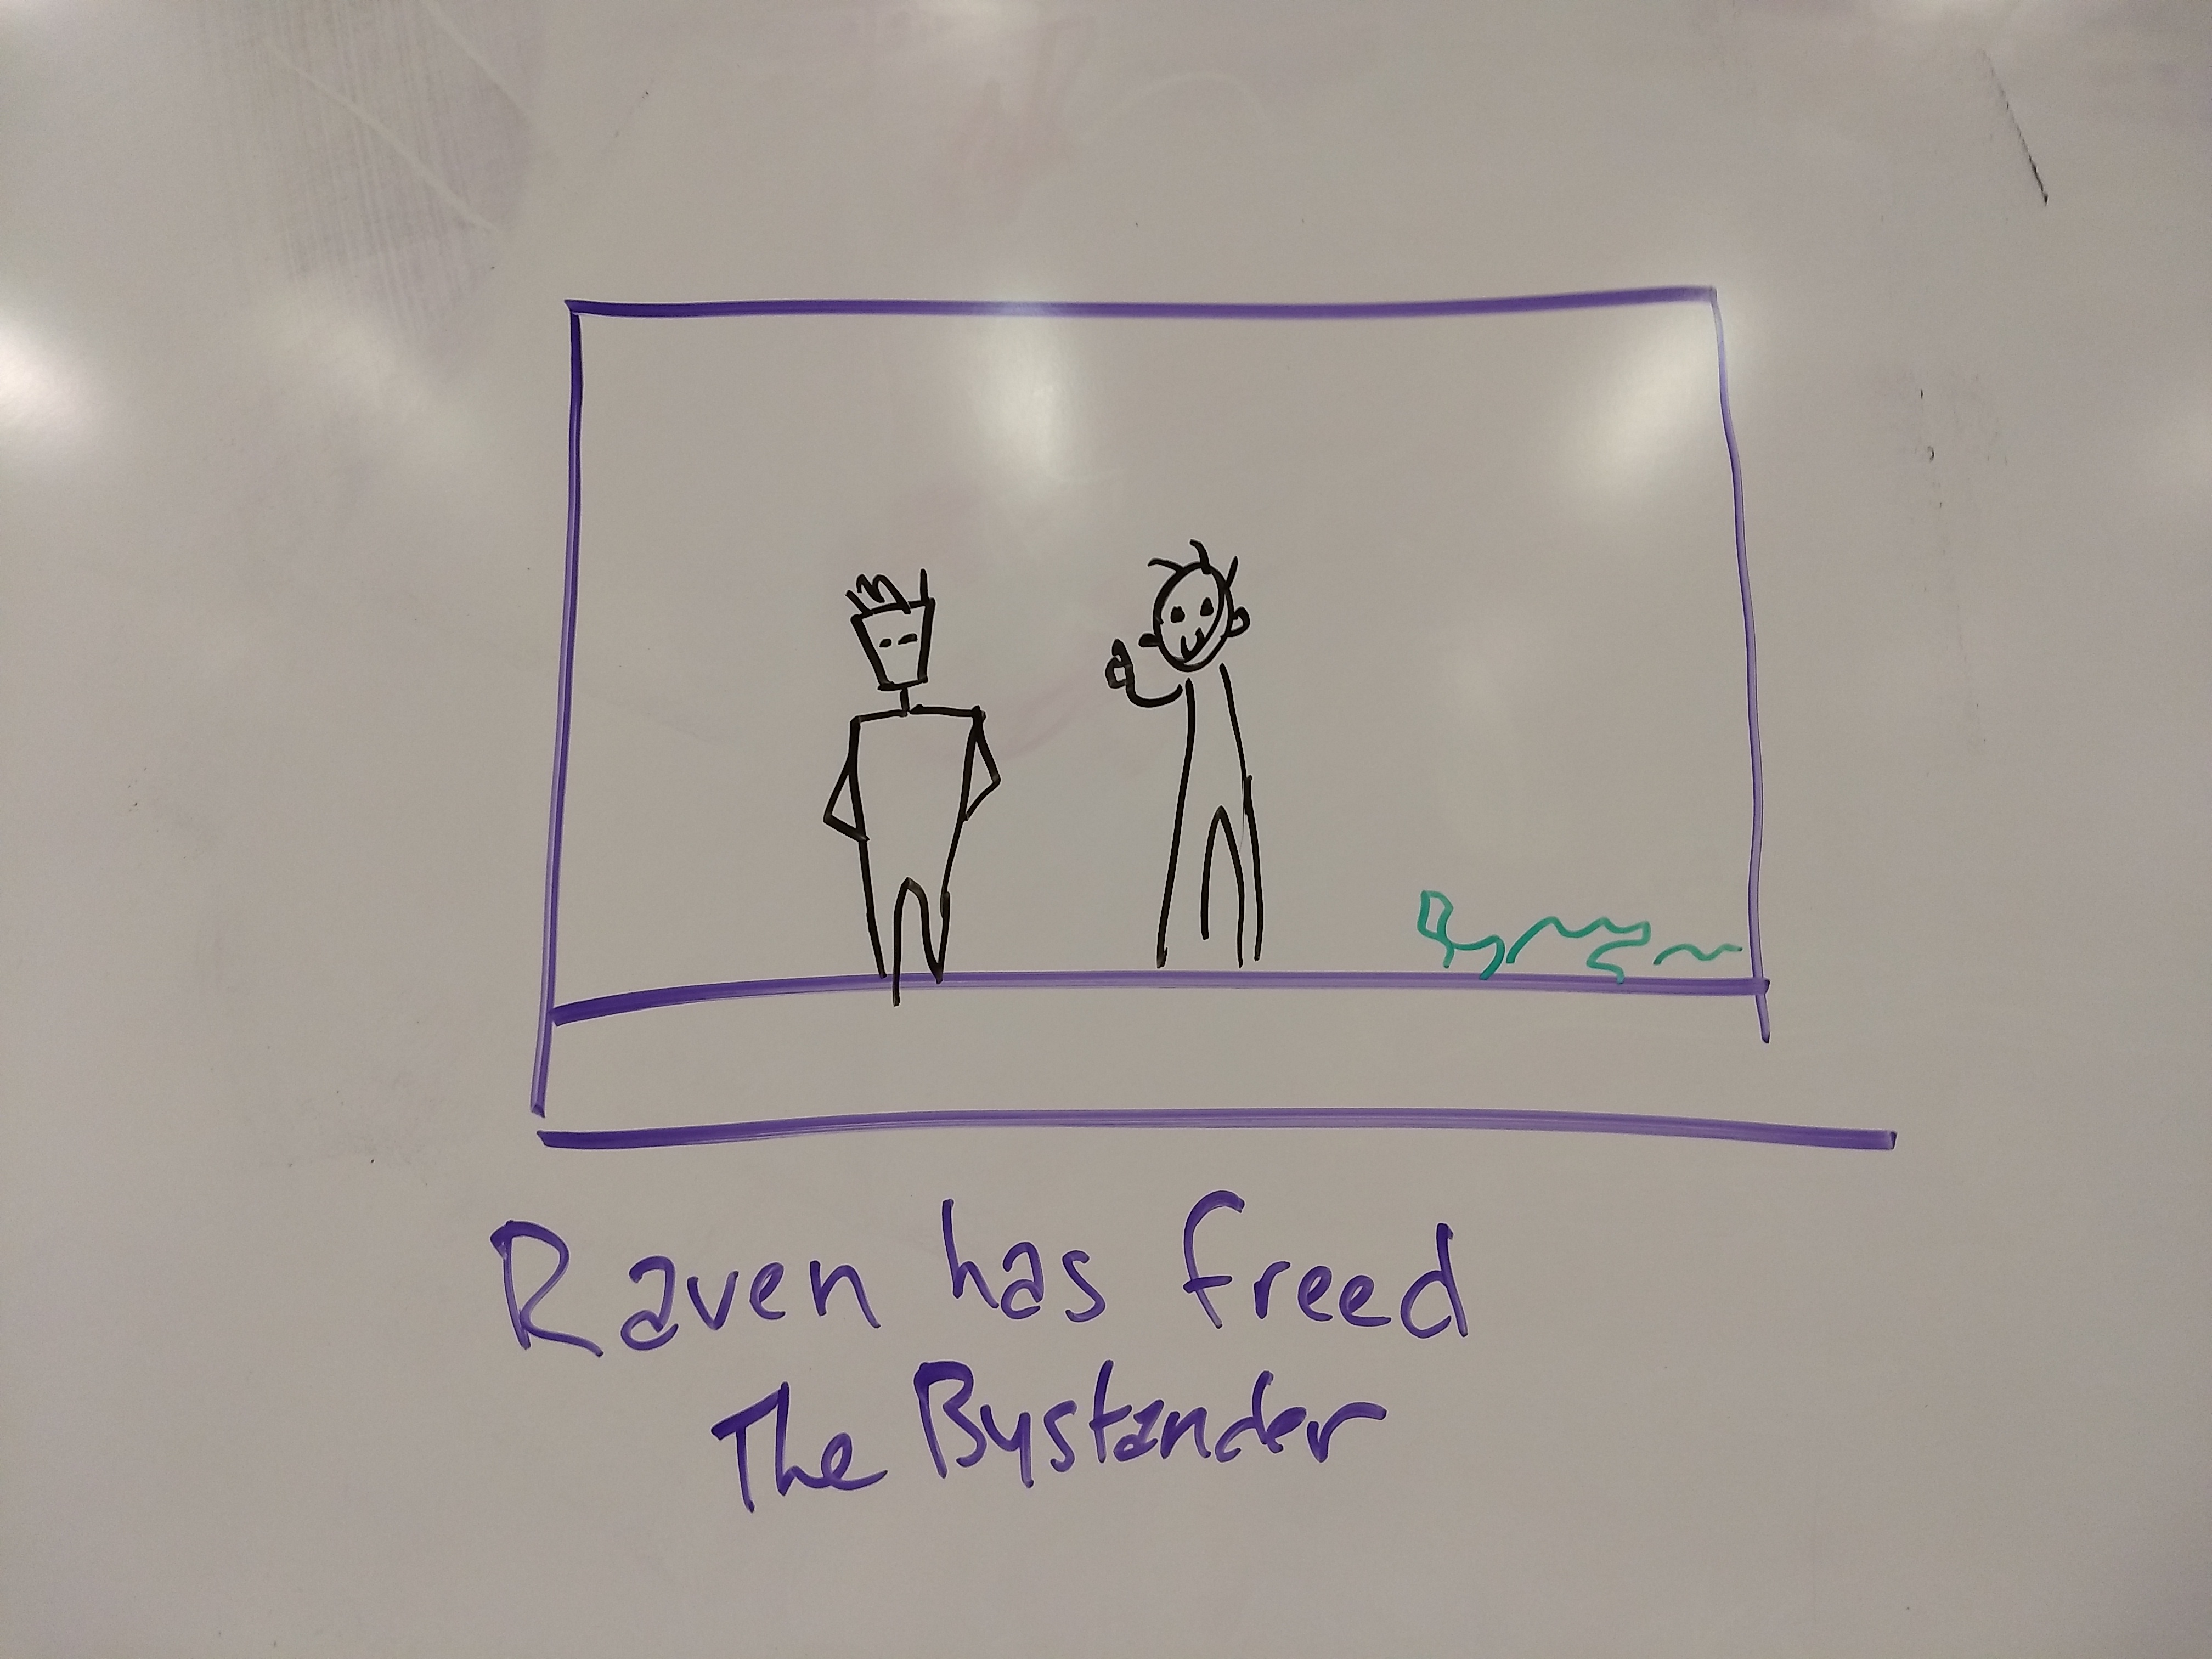 Raven has freed
The Bystander